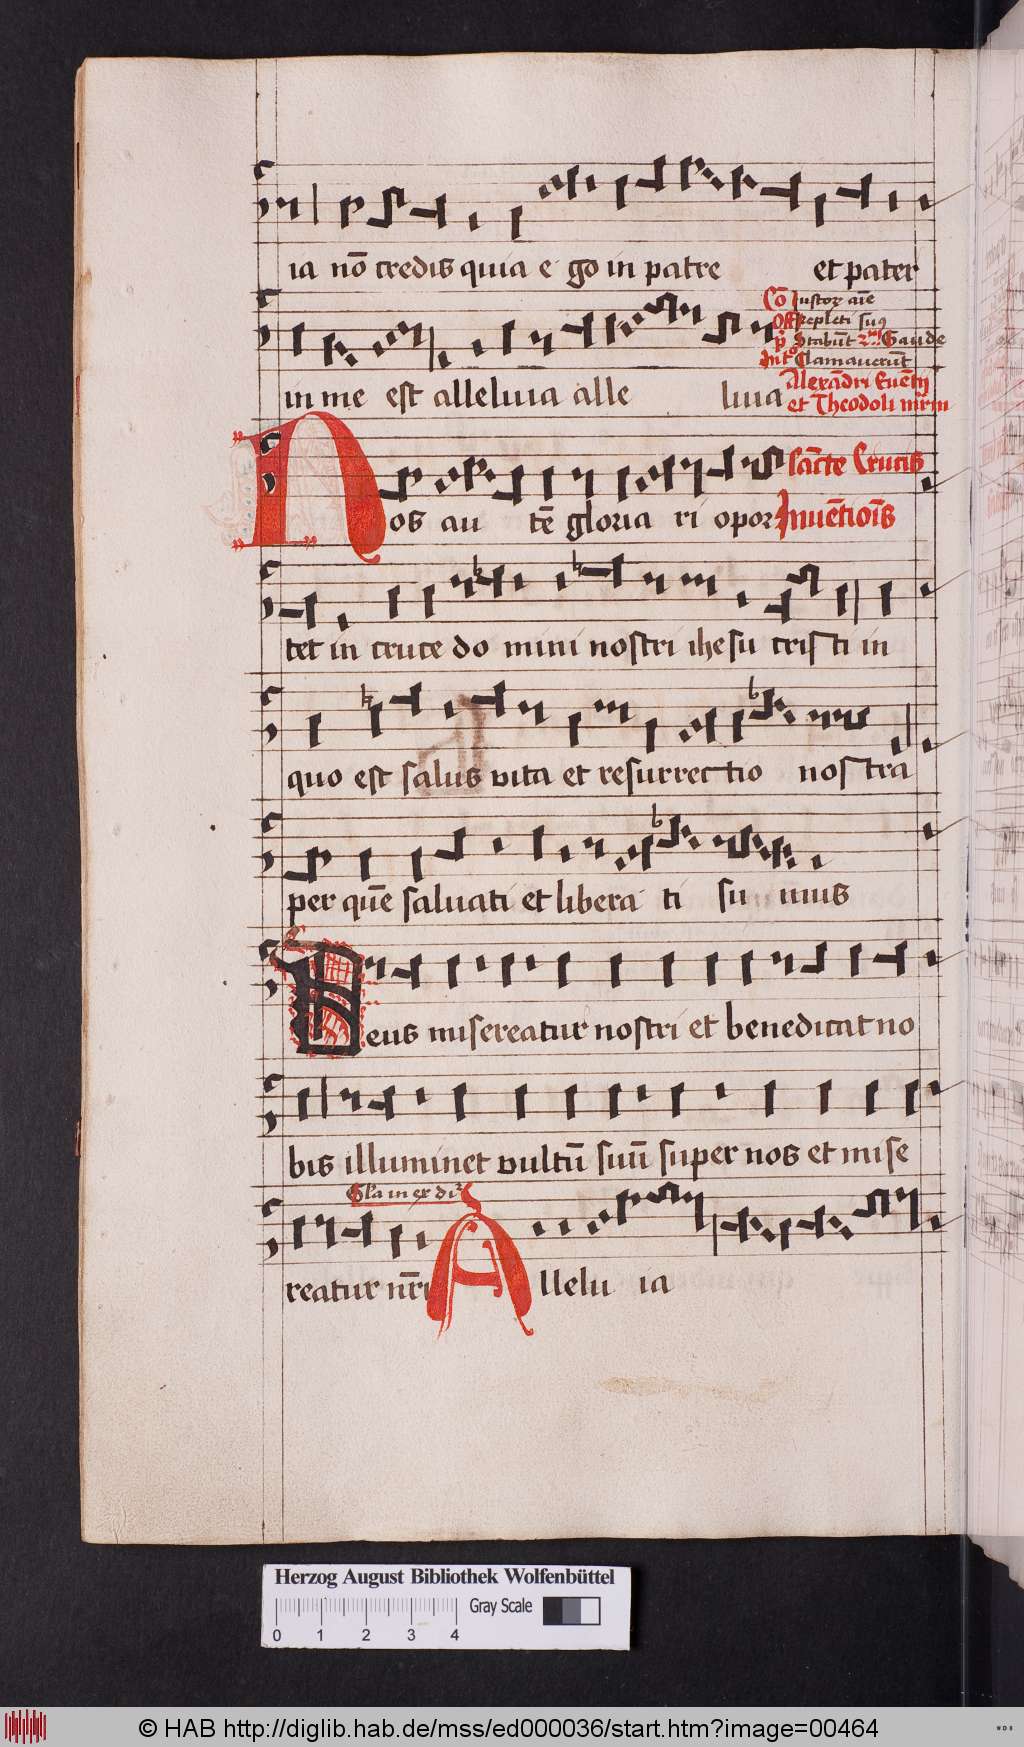 ia nō credis quia e go in patre et pater
Cō Justoꝝ aīe
Off Repleti suꝰ
in me est alleluia alle luia
Alexādri Euētij
et Theodoli mr̄m
Nos au tē gloria ri opor
sācte Crucis
Inuētiōīs
tet in cruce do mini nostri ihesu cristi in
quo est salus vita et resurrectio nostra
per quē saluati et libera ti su mus
Deus misereatur nostri et benedicat no
bis illuminet vultū suū super nos et mise
reatur nr̄i
Alleluia
Herzog August Bibliothek Wolfenbüttel
Gray Scale
0 1 2 3 4
© HAB http://diglib.hab.de/mss/ed000036/start.htm?image=00464